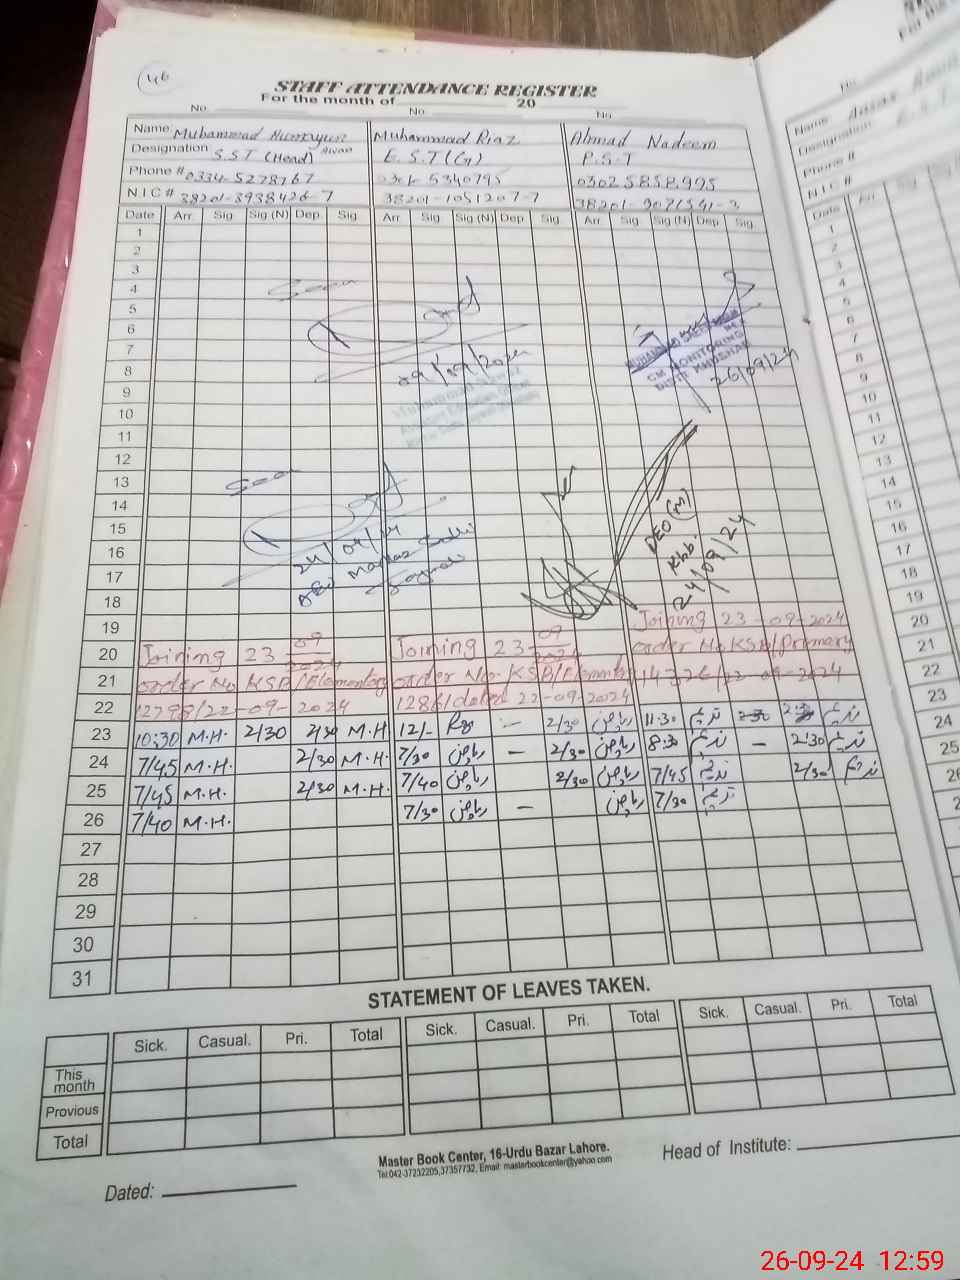 46
STAFF ATTENDANCE REGISTER
For the month of 20
No. No. No.
Name Muhammad Humayun Awan Muhammad Riaz Ahmad Nadeem
Designation S.S.T (Head) E.S.T (G) P.S.T
Phone # 0334-5278767 5340795 03025858995
N.I.C # 38201-3938426-7 38201-1051207-7 38201-9071541-3
Date Arr. Sig Sig (N) Dep. Sig. Arr. Sig. Sig (N) Dep Sig. Arr. Sig. Sig (N) Dep. Sig.
1
2
3
4 Seen
5
6
7
8 09/09/2024 CM MONITORING 26/09/24
9
10
11
12
13 Seen
14
15 DEO (M)
16 24/09/24 Khb.
17 AEO Markaz 24/09/24
18
19 Joining 23-09-2024
20 Joining 23 09/2024 Joining 23 09/2024 order No KSB/Primary
21 order No KSB/Elementary order No. KSB/Elementry 14726/22-09-2024
22 12798/22-09-2024 12861 dated 22-09-2024
23 10:30 M.H. 2/30 2/30 M.H 12/- – 2/30 ریاض 11:30 ندیم 2:30 ندیم
24 7/45 M.H. 2/30 M.H. 7/30 ریاض – 2/30 ریاض 8:30 ندیم – 2:30 ندیم
25 7/45 M.H. 2/30 M.H. 7/40 ریاض 2/30 ریاض 7/45 ندیم 2/30 ندیم
26 7/40 M.H. 7/30 ریاض – ریاض 7/30 ندیم
27
28
29
30
31
STATEMENT OF LEAVES TAKEN.
Sick. Casual. Pri. Total Sick. Casual. Pri. Total Sick. Casual. Pri. Total
This month
Provious
Total
Master Book Center, 16-Urdu Bazar Lahore.
Tel:042-37232205,37357732, Email: masterbookcenter@yahoo.com
Head of Institute:
Dated:
26-09-24 12:59